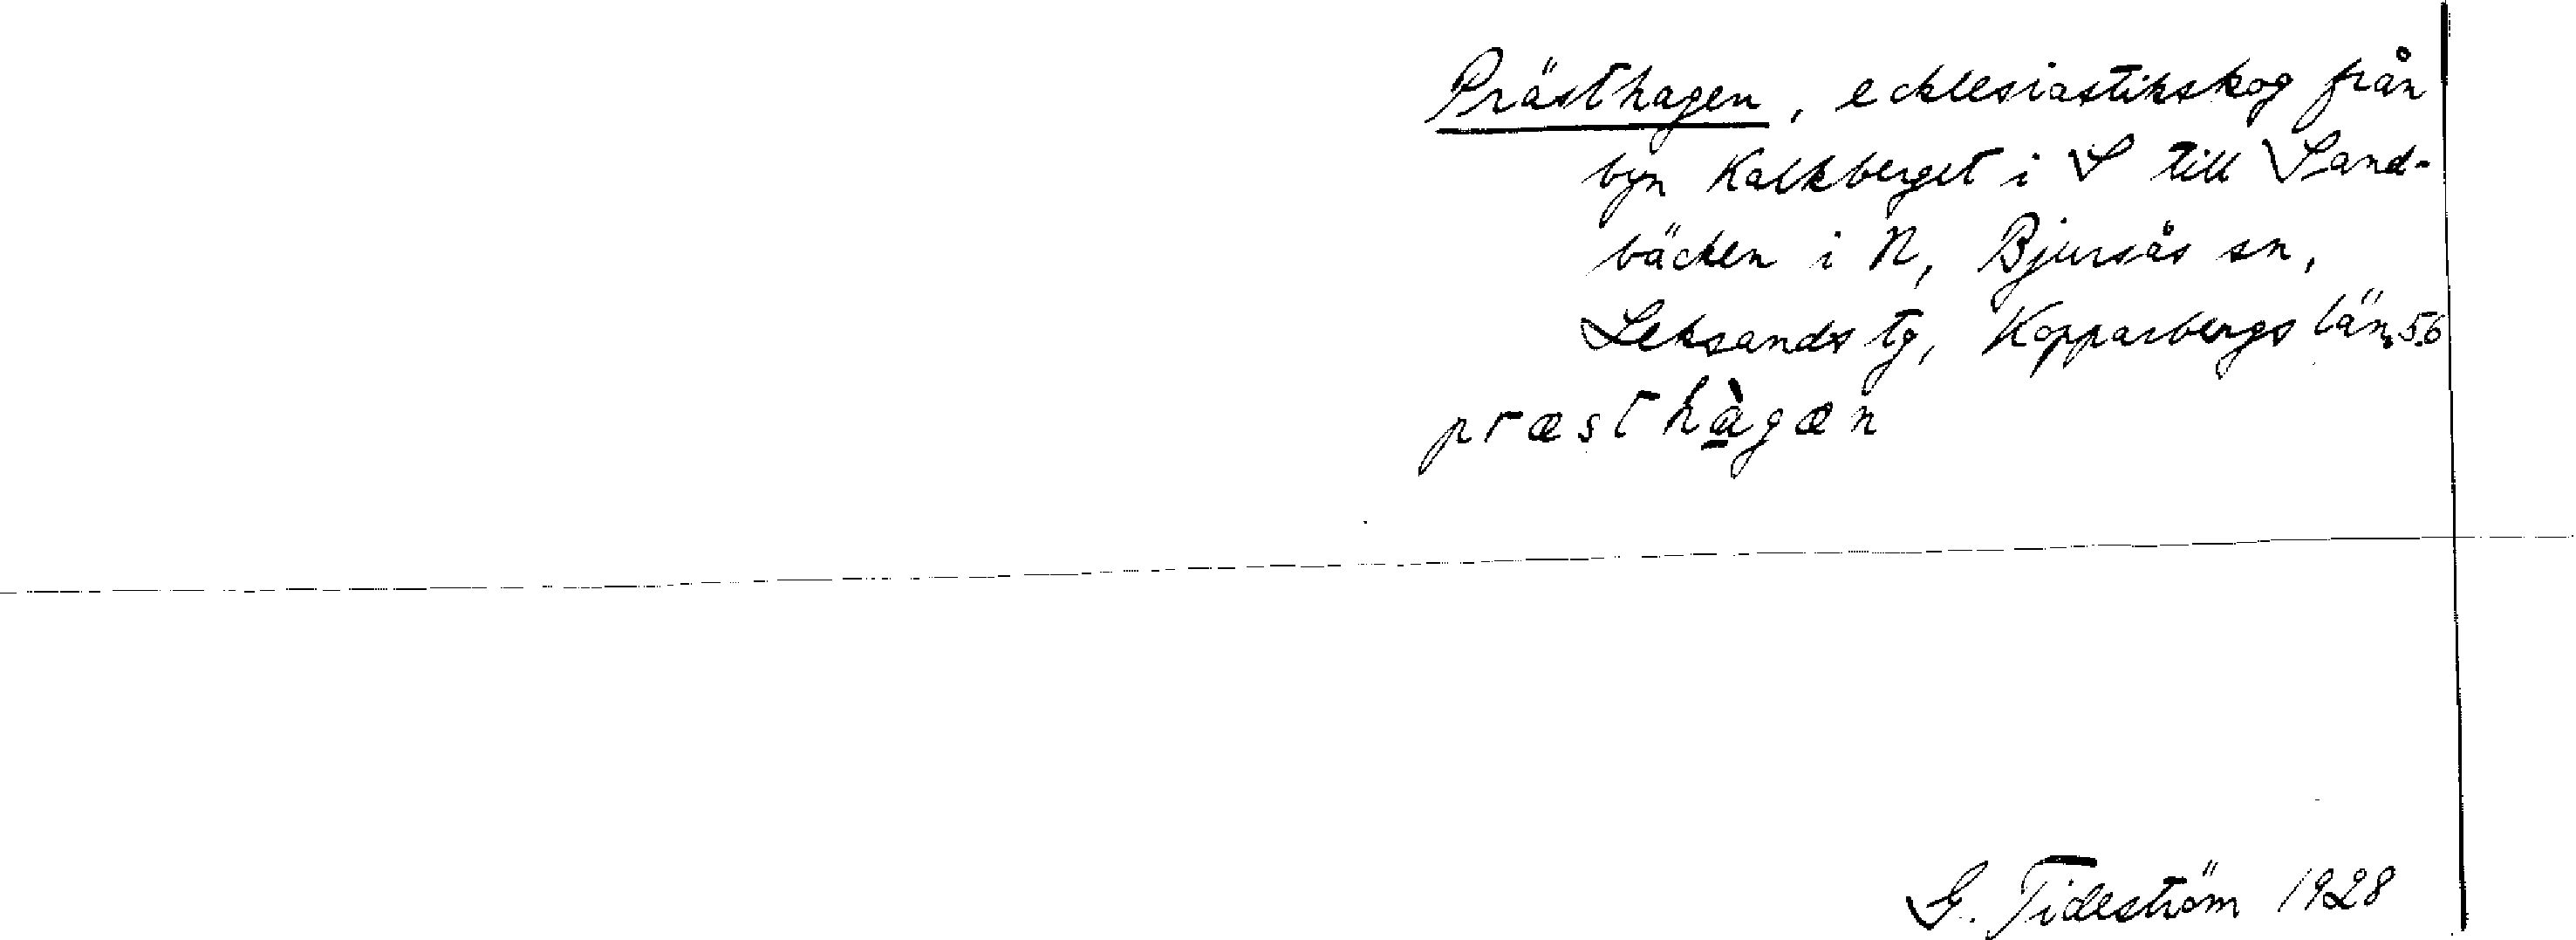 Prästhagen, ecklesiastikskog från
byn Kalkberget i S till Sand-
bäcken i N, Bjursås sn,
Leksands tg, Kopparbergs län. 56
præsthàgæn
G. Tideström 1928